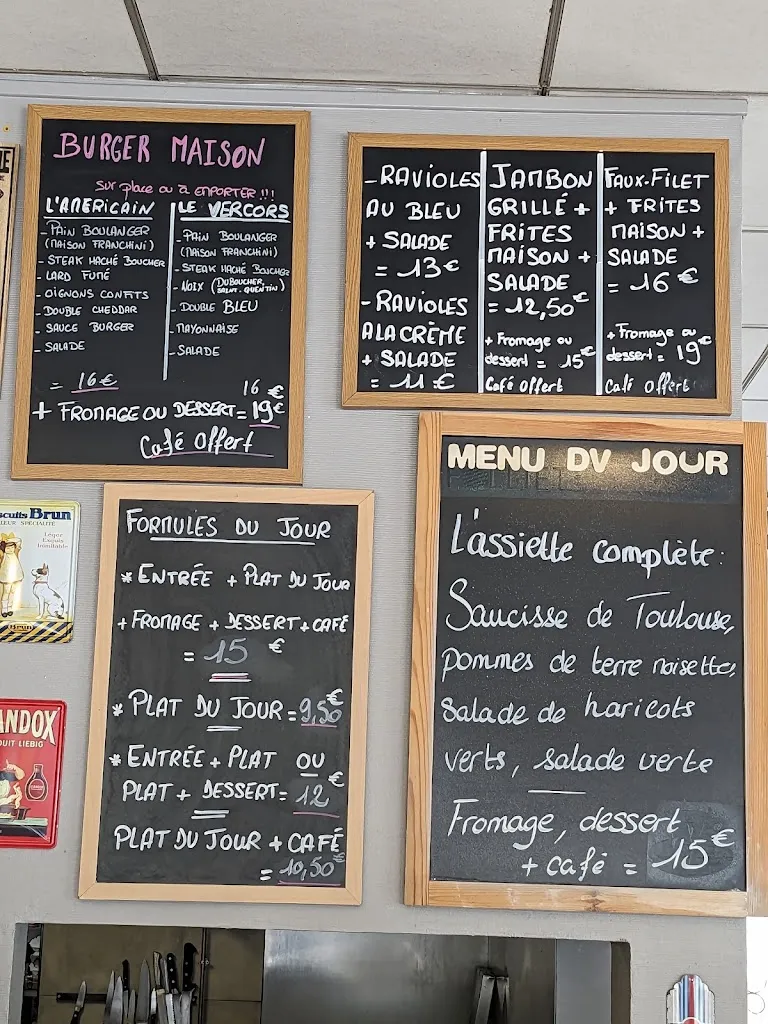 BURGER MAISON
SUR place ou à EMPORTER !!!
L'AMERICAIN
- PAIN BOULANGER
(MAISON FRANCHINI)
- STEAK HACHÉ BOUCHER
- LARD FUMÉ
- OIGNONS CONFITS
- DOUBLE CHEDDAR
- SAUCE BURGER
- SALADE
= 16 €
LE VERCORS
- PAIN BOULANGER
(MAISON FRANCHINI)
- STEAK HACHÉ BOUCHER
- NOIX (DUBOUCHER, SAINT-QUENTIN)
- DOUBLE BLEU
- MAYONNAISE
- SALADE
16 €
+ FROMAGE OU DESSERT = 19€
Café offert
- RAVIOLES
AU BLEU
+ SALADE
= 13€
- RAVIOLES
A LA CRÈME
+ SALADE
= 11 €
JAMBON
GRILLÉ +
FRITES
MAISON +
SALADE
= 12,50€
+ Fromage ou
dessert = 15€
Café offert
FAUX-FILET
+ FRITES
MAISON +
SALADE
= 16 €
+ Fromage ou
dessert = 19€
Café offert
FORMULES DU JOUR
* ENTRÉE + PLAT DU JOUR
+ FROMAGE + DESSERT + CAFÉ
= 15 €
* PLAT DU JOUR = 9,50€
* ENTRÉE + PLAT OU
PLAT + DESSERT = 12€
PLAT DU JOUR + CAFÉ
= 10,50€
MENU DV JOUR
L'assiette complète :
Saucisse de Toulouse,
pommes de terre noisettes,
salade de haricots
verts, salade verte
Fromage, dessert
+ café = 15€
Brun
Léger
Exquis
Inimitable
ANDOX
UIT LIEBIG